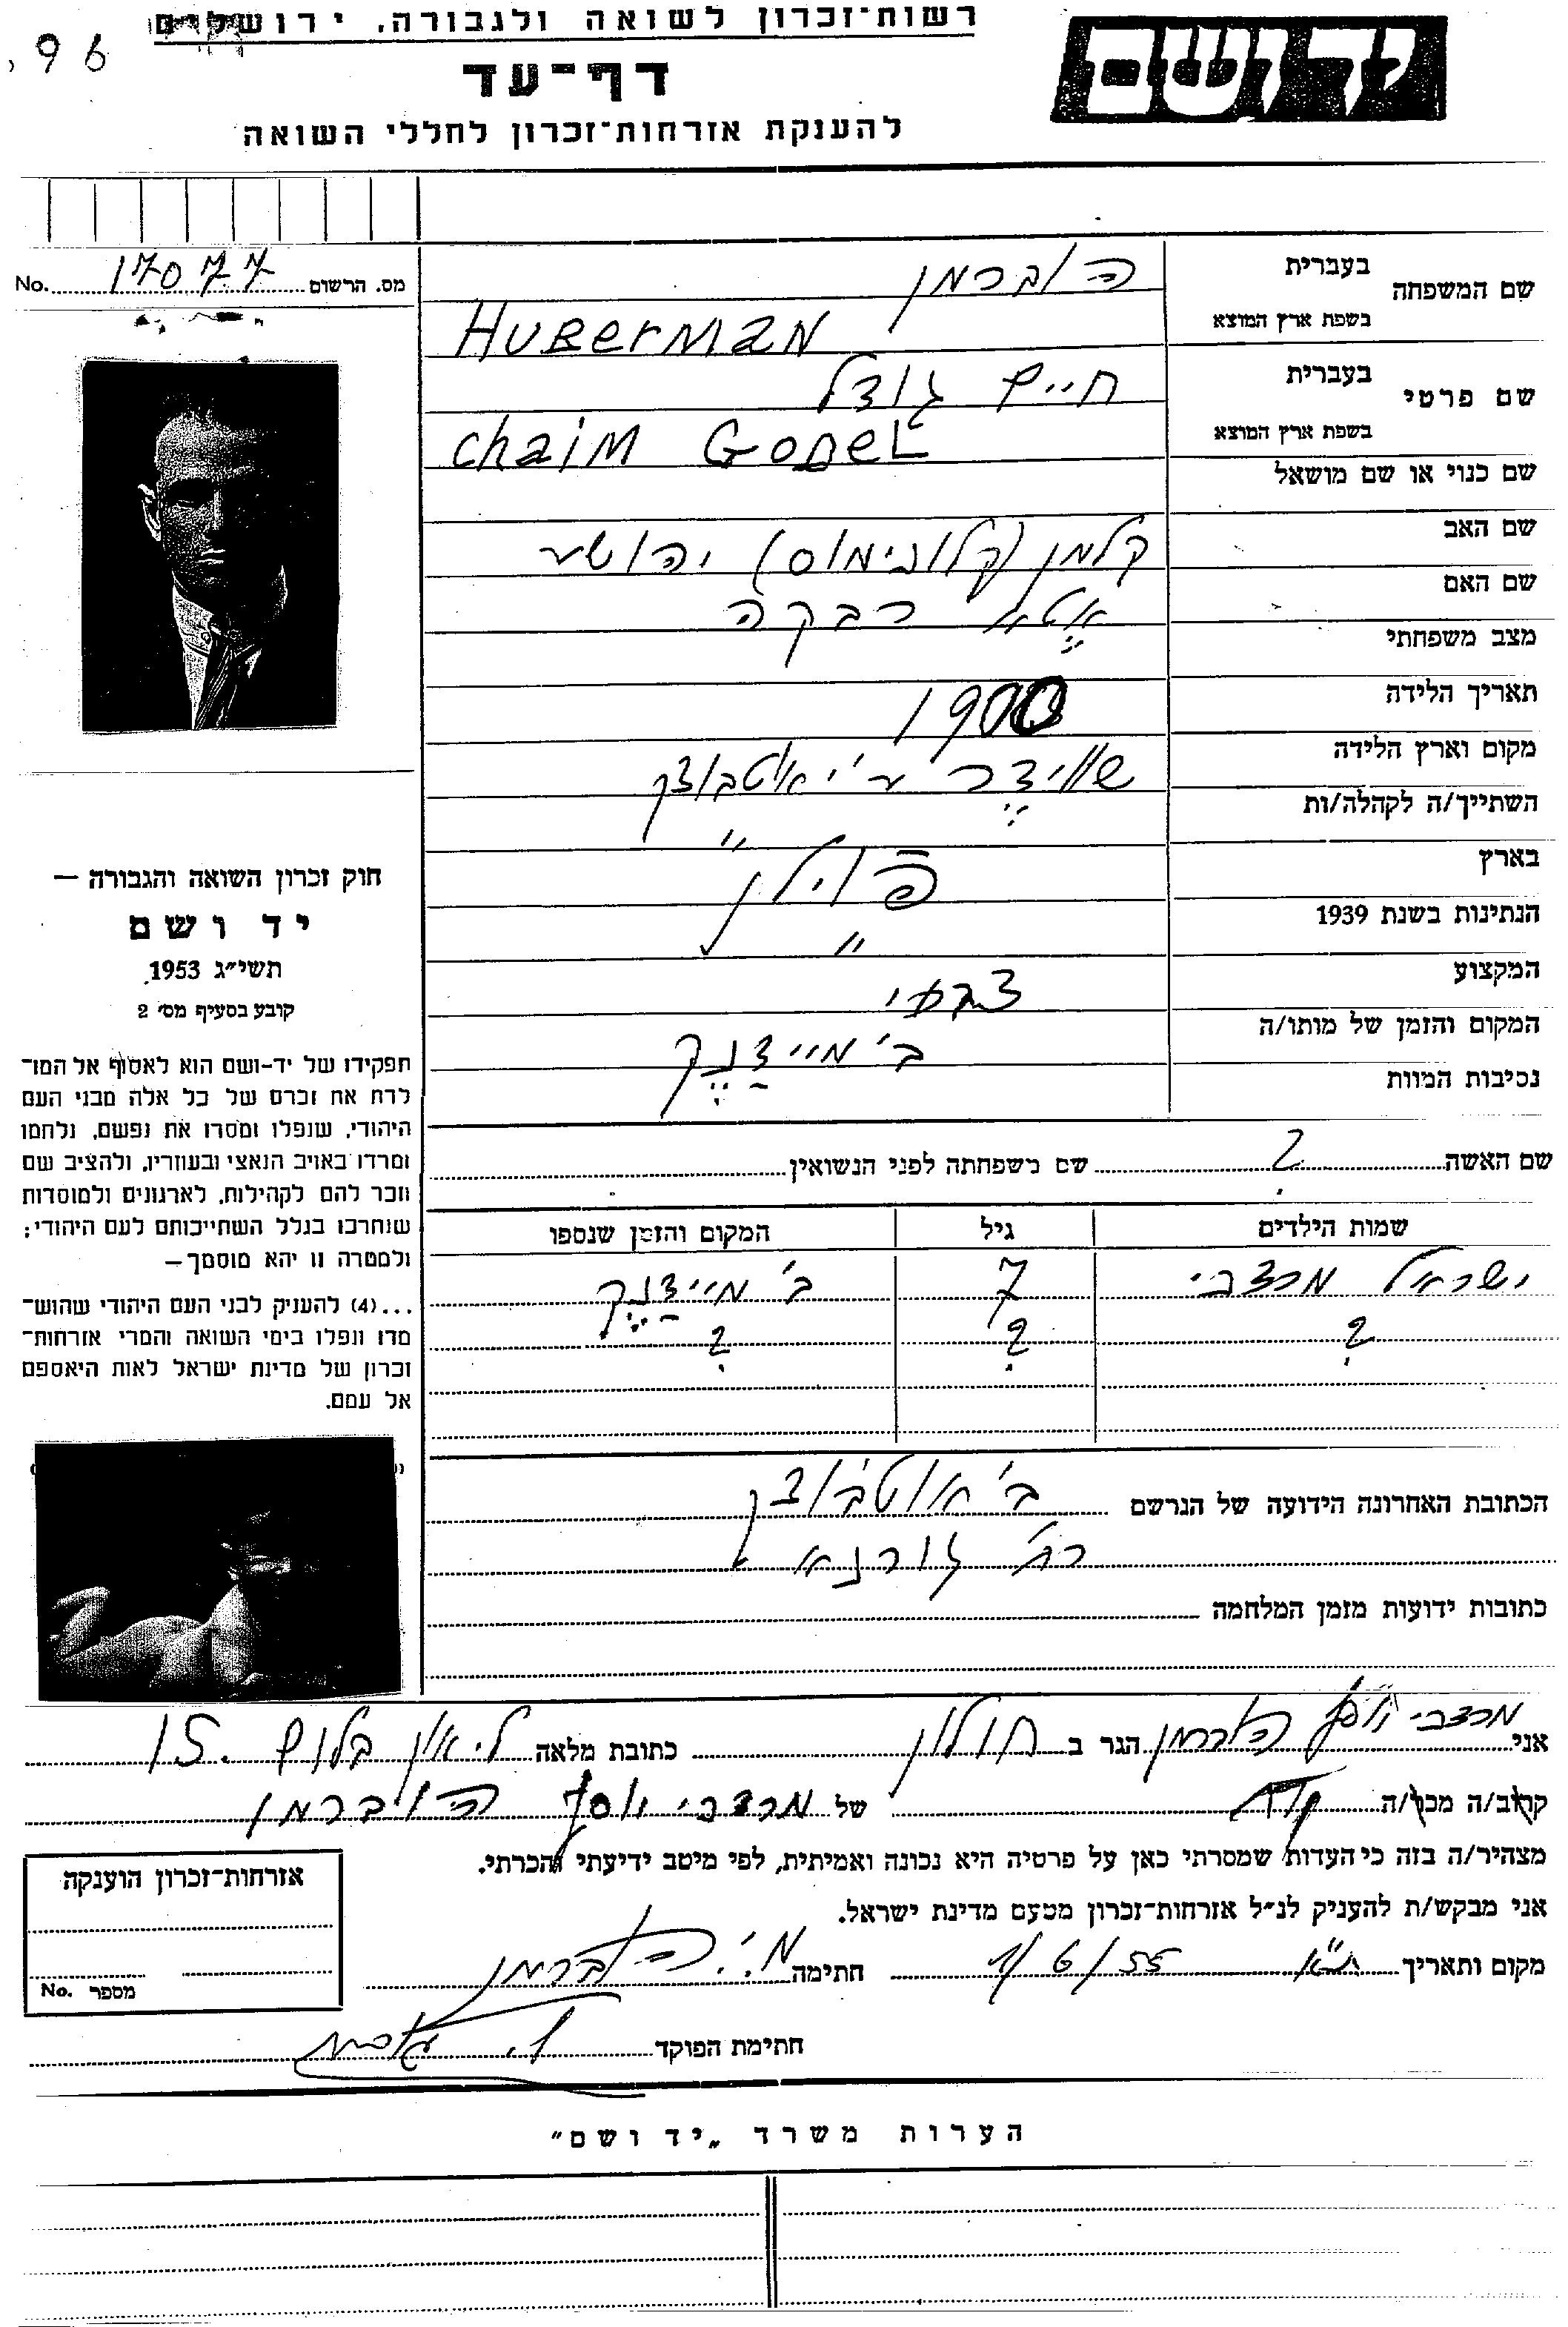 רשות־זכרון לשואה ולגבורה, ירושלים
96
יד ושם
דף־עד
להענקת אזרחות־זכרון לחללי השואה
No. 17077 מס. הרשום
שם המשפחה
בעברית
הוברמן
בשפת ארץ המוצא
Huberman
שם פרטי
בעברית
חיים גודל
בשפת ארץ המוצא
Chaim Godel
שם כנוי או שם מושאל
שם האב
קלמן (קלונימוס) יהושע
שם האם
אֶטא רבקה
מצב משפחתי
תאריך הלידה
1900
מקום וארץ הלידה
שוידֶר ע"י אוטבוצק
השתייך/ה לקהלה/ות
"
בארץ
פולין
הנתינות בשנת 1939
"
המקצוע
צבעי
המקום והזמן של מותו/ה
ב' מיידַנֶק
נסיבות המוות
שם האשה ? שם משפחתה לפני הנשואין
שמות הילדים גיל המקום והזמן שנספו
ישראל מרדכי 7 ב' מיידַנֶק
? ? ?
הכתובת האחרונה הידועה של הנרשם ב' אוטבוצק
רח'
כתובות ידועות מזמן המלחמה
חוק זכרון השואה והגבורה —
יד ושם
תשי״ג 1953
קובע בסעיף מס׳ 2
תפקידו של יד-ושם הוא לאסוף אל המו־
לדת את זכרם של כל אלה מבני העם
היהודי, שנפלו ומסרו את נפשם, נלחמו
ומרדו באויב הנאצי ובעוזריו, ולהציב שם
וזכר להם לקהילות, לארגונים ולמוסדות
שנחרבו בגלל השתייכותם לעם היהודי;
ולמטרה זו יהא מוסמך —
...(4) להעניק לבני העם היהודי שהוש־
מדו ונפלו בימי השואה והמרי אזרחות־
זכרון של מדינת ישראל לאות היאספם
אל עמם.
אני מרדכי יוסף הוברמן הגר ב חולון כתובת מלאה ליאון בלום 15.
קרוב/ה מכר/ה של מרדכי יוסף הוברמן
מצהיר/ה בזה כי העדות שמסרתי כאן על פרטיה היא נכונה ואמיתית, לפי מיטב ידיעתי והכרתי.
אני מבקש/ת להעניק לנ״ל אזרחות־זכרון מטעם מדינת ישראל.
מקום ותאריך ת"א 1/6/55 חתימה מ.י. הוברמן
חתימת הפוקד
אזרחות־זכרון הוענקה
No. מספר
הערות משרד „יד ושם״